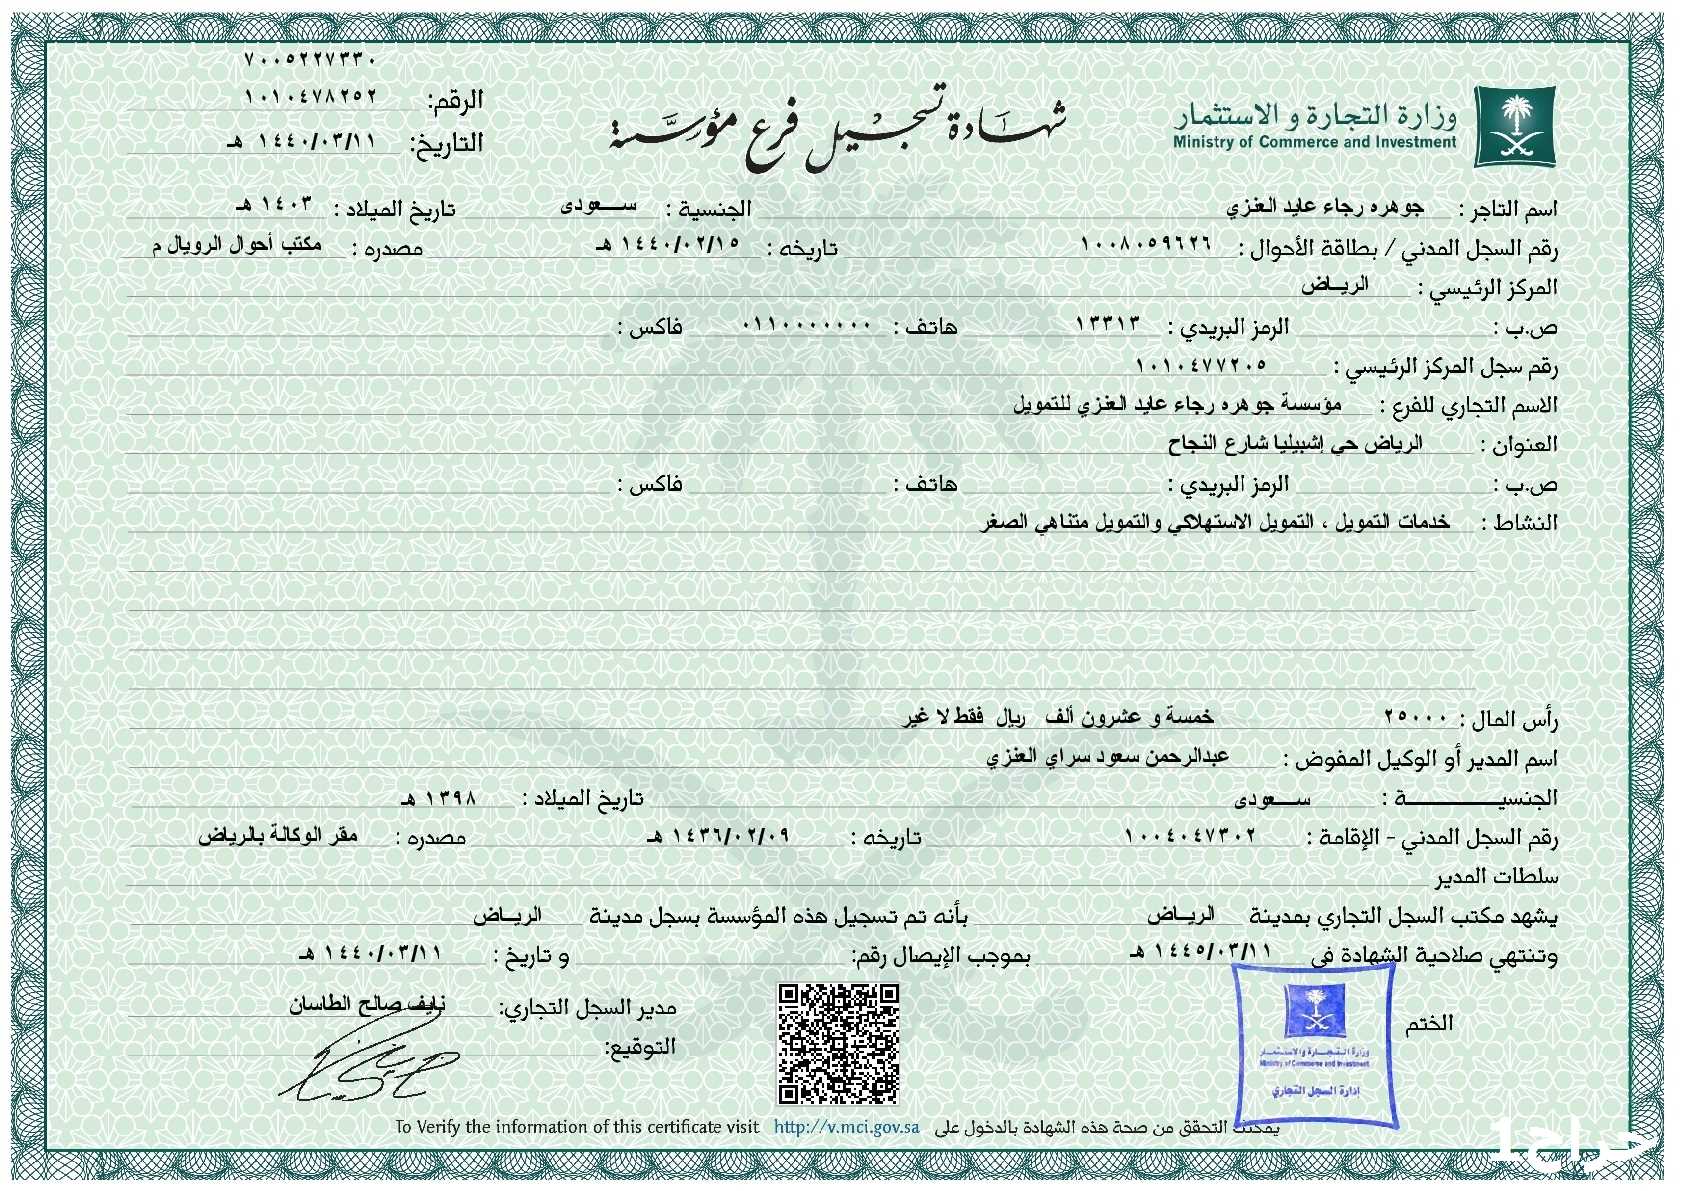 ٧٠٠٥٢٢٧٣٣٠
الرقم: ١٠١٠٤٧٨٢٥٢
التاريخ: ١٤٤٠/٠٣/١١ هـ
شهادة تسجيل فرع مؤسسة
وزارة التجارة و الاستثمار
Ministry of Commerce and Investment
اسم التاجر : جوهره رجاء عايد العنزي الجنسية : ســعودى تاريخ الميلاد : ١٤٠٣ هـ
رقم السجل المدني / بطاقة الأحوال : ١٠٠٨٠٥٩٦٢٦ تاريخه : ١٤٤٠/٠٢/١٥ هـ مصدره : مكتب أحوال الرويال م
المركز الرئيسي : الريــاض
ص.ب : الرمز البريدي : ١٣٣١٣ هاتف : ٠١١٠٠٠٠٠٠٠ فاكس :
رقم سجل المركز الرئيسي : ١٠١٠٤٧٧٢٠٥
الاسم التجاري للفرع : مؤسسة جوهره رجاء عايد العنزي للتمويل
العنوان : الرياض حي إشبيليا شارع النجاح
ص.ب : الرمز البريدي : هاتف : فاكس :
النشاط : خدمات التمويل ، التمويل الاستهلاكي والتمويل متناهي الصغر
رأس المال : ٢٥٠٠٠ خمسة و عشرون ألف ريال فقط لا غير
اسم المدير أو الوكيل المفوض : عبدالرحمن سعود سراي العنزي
الجنسيــــــــة : ســعودى تاريخ الميلاد : ١٣٩٨ هـ
رقم السجل المدني - الإقامة : ١٠٠٤٠٤٧٣٠٢ تاريخه : ١٤٣٦/٠٢/٠٩ هـ مصدره : مقر الوكالة بالرياض
سلطات المدير
يشهد مكتب السجل التجاري بمدينة الريــاض بأنه تم تسجيل هذه المؤسسة بسجل مدينة الريــاض
وتنتهي صلاحية الشهادة فى ١٤٤٥/٠٣/١١ هـ بموجب الإيصال رقم: و تاريخ : ١٤٤٠/٠٣/١١ هـ
مدير السجل التجاري: نايف صالح الطاسان
التوقيع:
الختم
وزارة التجارة والاستثمار
Ministry of Commerce and Investment
إدارة السجل التجاري
يمكنك التحقق من صحة هذه الشهادة بالدخول على http://v.mci.gov.sa To Verify the information of this certificate visit
حراج1